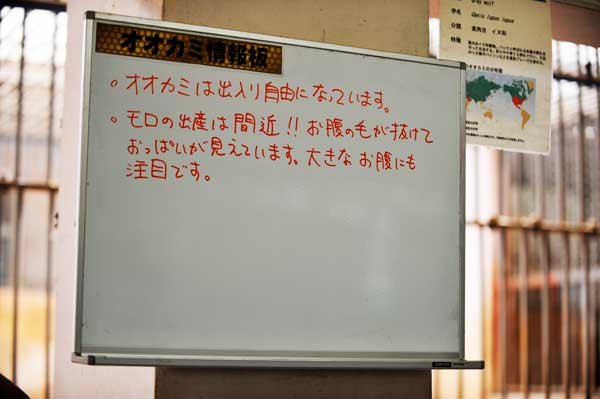 オオカミ情報板
。オオカミは出入り自由になっています。
。モロの出産は間近!! お腹の毛が抜けて
おっぱいが見えています。大きなお腹にも
注目です。
Gray wolf
学名
Canis lupus lupus
分類
食肉目 イヌ科
特徴